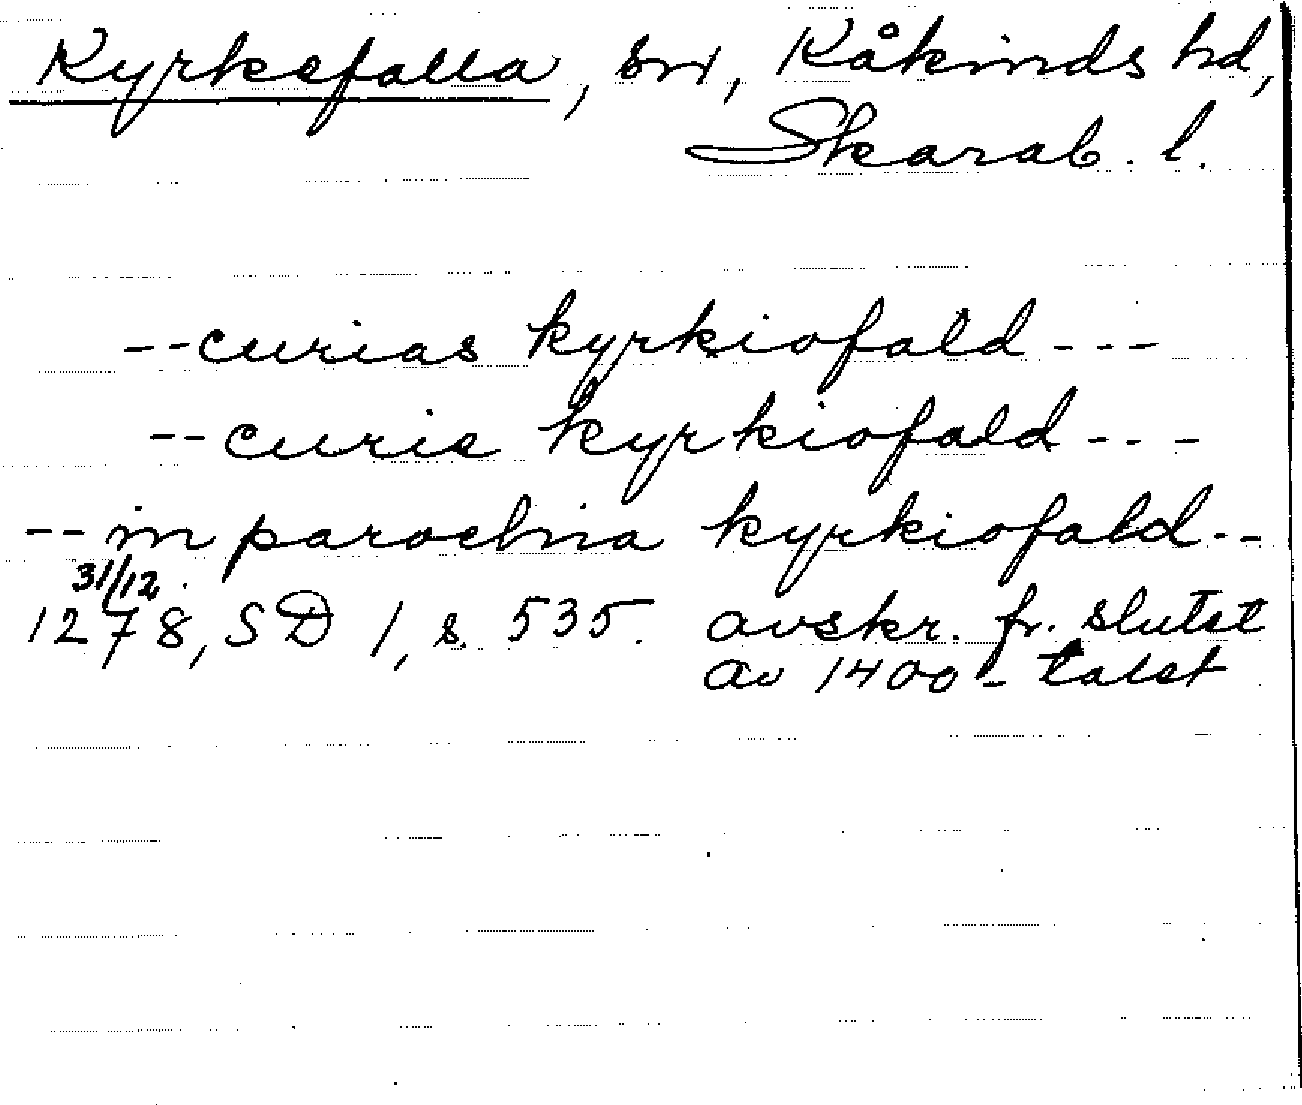 Kyrkefalla, sn, Kåkinds hd,
Skarab. l.
--curias kyrkiofald---
--curie kyrkiofald---
--in parochia kyrkiofald--
31/12
1278, SD 1, s. 535. avskr. fr. slutet
av 1400-talet